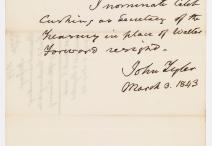 I nominate Caleb
Cushing as Secretary of the
Treasury in place of Walter
Forward resigned.
John Tyler
March 3. 1843